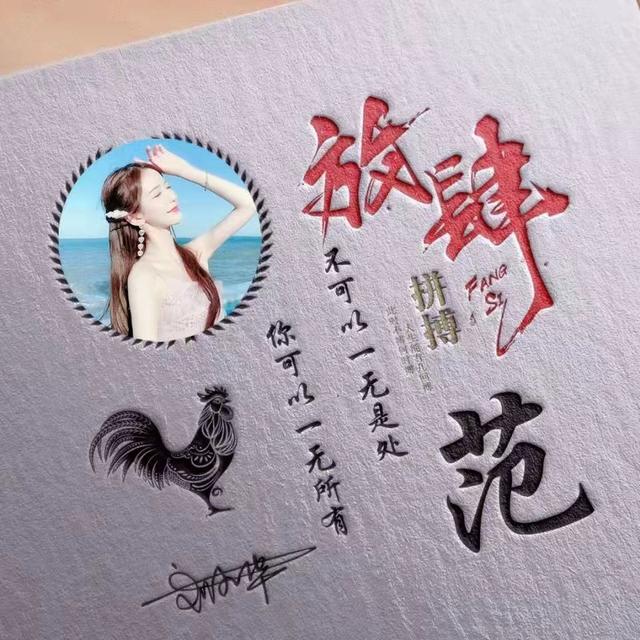 放肆
FANG
SI
拼搏
不可以一无是处
你可以一无所有
范